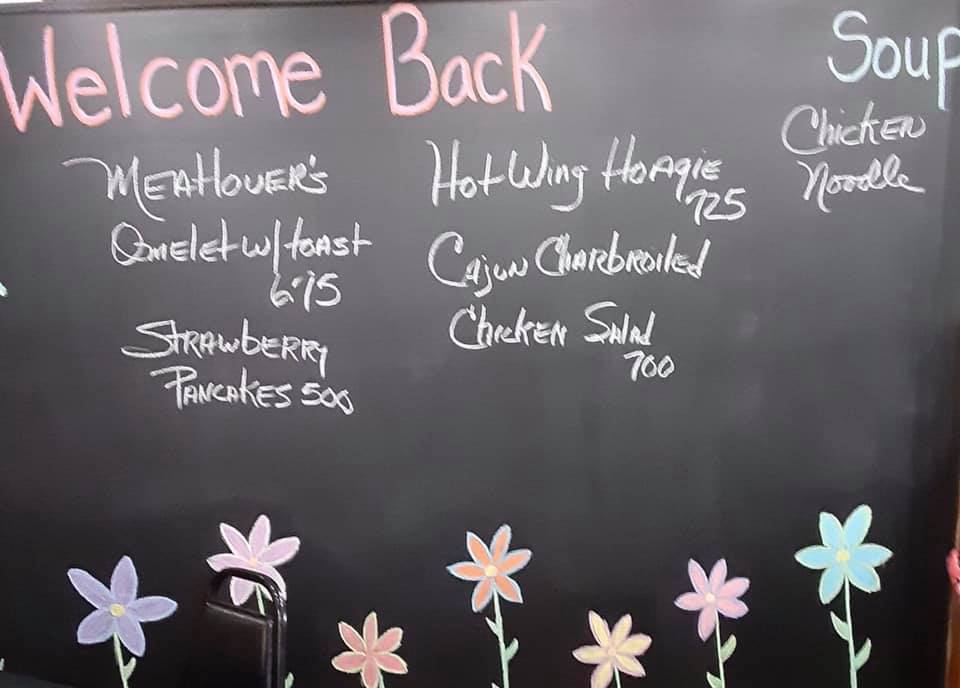 Welcome Back
MEATLOVER'S
Omelet w/toast
6.75
STRAWBERRY
PANCAKES 500
Hot Wing HOAgiE
725
CAjuN CHARbROilEd
ChickEN SAlAd
700
Soup
ChickEN
Noodle